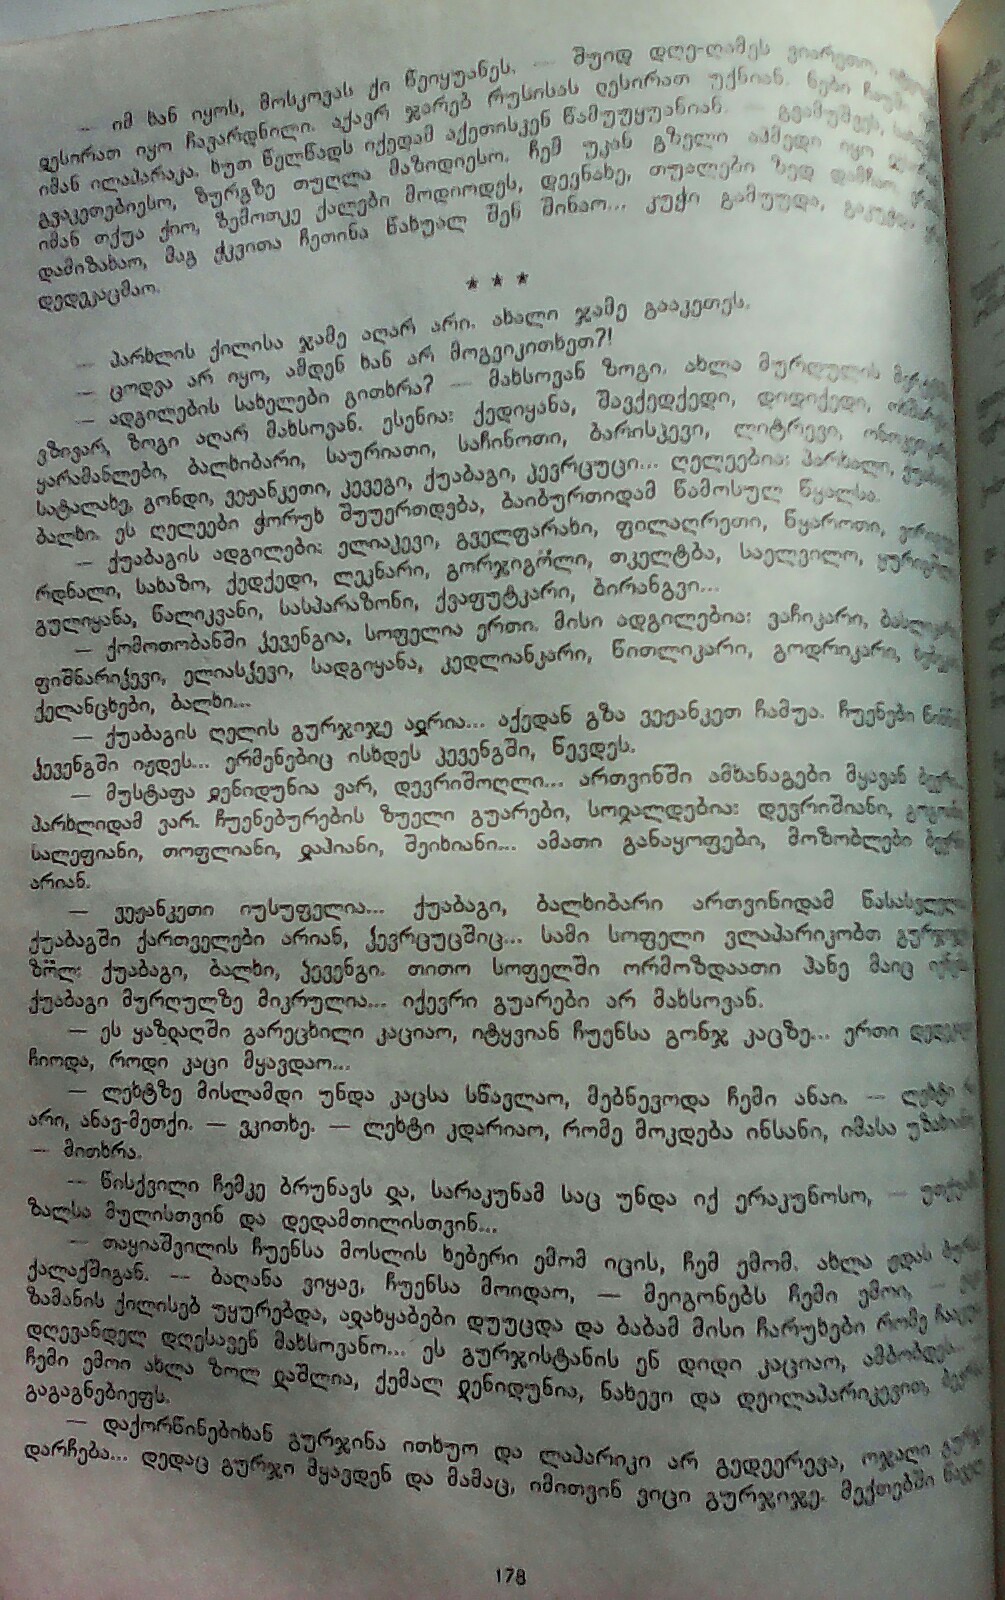 — იმ ხან იყოს, მოსკოვას ქი წეიყუანეს. — შუიდ დღე-ღამეს ვიარეთო,
ჲესირათ იყო ჩავარდნილი. აქავრ ჯარებ რუსისას ჲესირათ უქნიან.
იმან ილაპარაკა. ხუთ წელწადს იქედამ აქეთისკენ წამუუყუანიან. — გვამუშვეს,
გვაკეთებიესო, ზურგზე თუღლა მაზიდიესო. ჩემ უკან გზელი აჰმედი იყო
იმან თქუა ქიო, ზემოთკე ქალები მოდიოდეს, დეენახე, თუალები ზედ დამრჩაო,
დამიზახაო, მაგ ჭკვითა ჩეთინა წახუალ შენ შინაო... კუჭი გამუუდა,
დედეკაცმაო.
* * *
— პარხლის ქილისა ჯამე აღარ არი. ახალი ჯამე გააკეთეს.
— ცოდვა არ იყო, ამდენ ხან არ მოგეიკითხეთ?!
— ადგილების სახელები გითხრა? — მახსოვან ზოგი. ახლა მურღულის
ვზივარ, ზოგი აღარ მახსოვან. ესენია: ქედიყანა, შავქედქედი, დიდიქედი,
ყარამანლები, ბალხიბარი, საურიათი, საჩინოთი, ბარისკევი, ლიტრევი,
სატალახე, გონდი, ვეჟანკეთი, კევეგი, ქუაბაგი, კევრცუცი... ღელეებია: პარხალი,
ბალხი. ეს ღელეები ჭორუხ შუუერთდება, ბაიბურთიდამ წამოსულ წყალსა.
— ქუაბაგის ადგილები: ელიაკევი, გველფარახი, ფილაღრეთი, წყაროთი,
რდნალი, სახაზო, ქედქედი, ლეკნარი, გორჯიგოლი, თკელტბა, საელვილო,
გულიყანა, წალიკვანი, სასპარაზონი, ქვაფუტკარი, ბირანგვი...
— ქომოთობანში ჰევენგია, სოფელია ერთი. მისი ადგილებია: ვაჩიკარი,
ფიშნარიჭევი, ელიასჭევი, სადგიყანა, კედლიანკარი, წითლიკარი, გოდრიკარი,
ქელანცხები, ბალხი...
— ქუაბაგის ღელის გურჯიჯე აჲრია... აქედან გზა ვეჟანკეთ ჩამუა. ჩუენები
ჰევენგში იჟდეს... ერმენებიც ისხდეს კევენგში, წევდეს.
— მუსტაფა ჲენიდუნია ვარ, დევრიშოღლი... ართვინში ამხანაგები მყავან
პარხლიდამ ვარ. ჩუენებურების ზუელი გუარები, სოჲალდებია: დევრიშიანი,
სალეფიანი, თოფლიანი, ჲაპიანი, შეიხიანი... ამათი განაყოფები, მოზობლები
არიან.
— ვეჟანკეთი იუსუფელია... ქუაბაგი, ბალხიბარი ართვინიდამ
ქუაბაგში ქართველები არიან, ჰევრცუცშიც... სამი სოფელი ვლაპარიკობთ
ზოლ: ქუაბაგი, ბალხი, ჰევენგი. თითო სოფელში ორმოზდაათი ჰანე მაიც
ქუაბაგი მურღულზე მიკრულია... იქევრი გუარები არ მახსოვან.
— ეს ყაზდაღში გარეცხილი კაციაო, იტყვიან ჩუენსა გონჯ კაცზე... ერთი
ჩიოდა, როდი კაცი მყავდაო...
— ლეხტზე მისლამდი უნდა კაცსა სწავლაო, მებნევოდა ჩემი ანაი. — ლეხტი
არი, ანავ-მეთქი. — ვკითხე. — ლეხტი კდარიაო, რომე მოკდება ინსანი, იმასა
— მითხრა.
— წისქვილი ჩემკე ბრუნავს ჲა, სარაკუნამ საც უნდა იქ ერაკუნოსო, —
ზალსა მულისთვინ და დედამთილისთვინ...
— თაყიაშვილის ჩუენსა მოსლის ხებერი ემომ იცის, ჩემ ემომ. ახლა
ქალაქშიგან. — ბაღანა ვიყავ, ჩუენსა მოიდაო, — მეიგონებს ჩემი ემოი, —
ზამანის ქილისებ უყურებდა, აჲახყაბები დუუცდა და ბაბამ მისი ჩარუხები რომე
დღევანდელ დღესავენ მახსოვანო... ეს გურჯისტანის ენ დიდი კაციაო,
ჩემი ემოი ახლა ზოლ ჲაშლია, ქემალ ჲენიდუნია, ნახევი და დეილაპარიკევით,
გაგაგნებიეფს.
— დაქორწინებიხან გურჯინა ითხუო და ლაპარიკი არ გედეერევა, ოჯაღი
დარჩება... დედაც გურჯი მყავდენ და მამაც, იმითვინ ვიცი გურჯიჯე. მექთებში
178